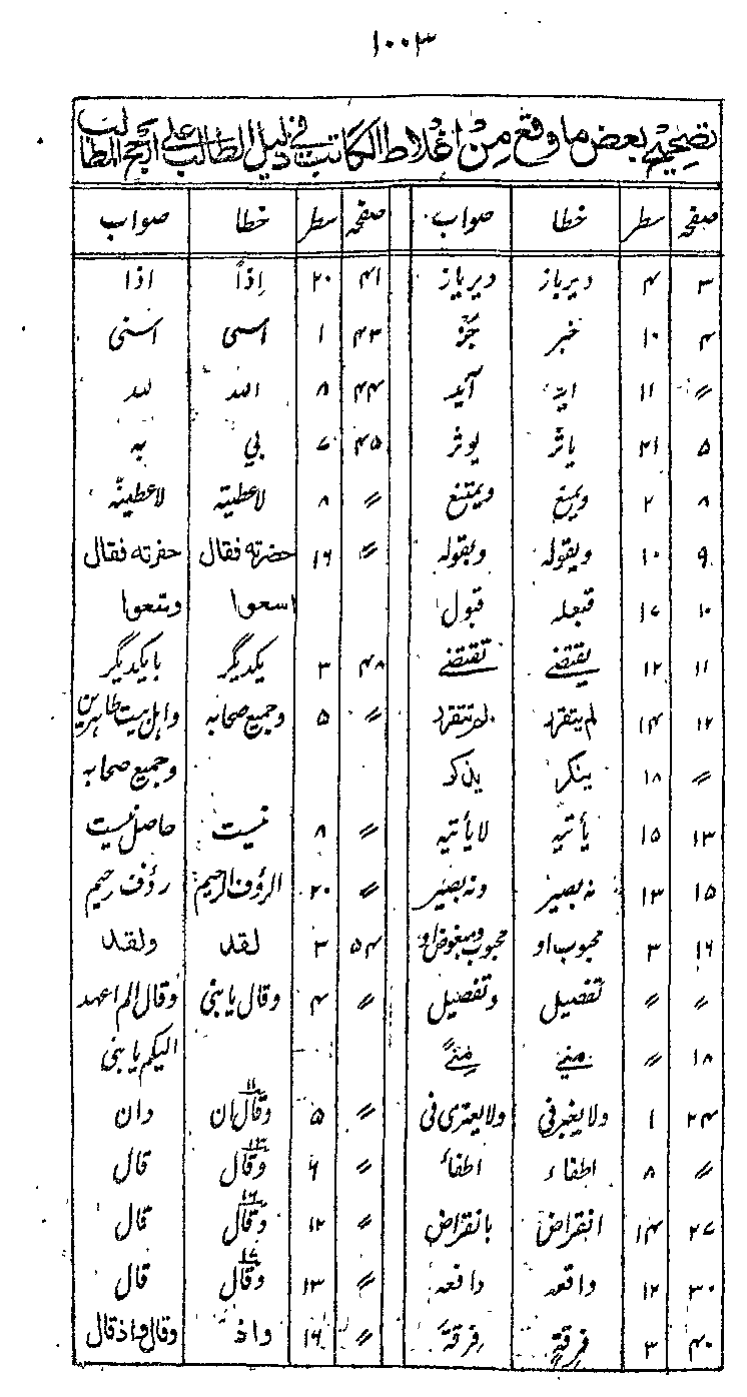 ۱۰۰۳
تصحیح بعض ما وقع من اغلاط الکاتب فی دلیل الطالب علی ارجح المطالب
صفحہ سطر خطا صواب صفحہ سطر خطا صواب
۳ ۴ دیرباز دیریاز ۴۱ ۲۰ إذاً اذا
۴ ۱۰ خبر جز ۴۳ ۱ اسمی اسنی
〃 ۱۱ آید ۴۴ ۸ اللہ للہ
۵ ۲۱ یاثر یوثر ۴۵ ۷ بي بہ
۸ ۲ ویمنع ویمتنع 〃 ۸ لاعطیتہ لاعطینّہ
۹ ۱۰ ویقولہ وبقولہ 〃 ۱۶ حضرتہ فقال حفرتہ فقال
۱۰ ۱۷ قبعلہ قبول اسعوا وتتعوا
۱۱ ۱۲ یقتضے تقتضے ۴۸ ۳ یکدیگر بایکدیگر
۱۲ ۱۴ لم یتفرد لم تتفرد 〃 ۵ وجمیع صحابہ واہل بیت طاہرین
〃 ۱۸ ینکر یذکر وجمیع صحابہ
۱۳ ۱۵ یأتیہ لایأتیہ 〃 ۸ نیست حاصل نیست
۱۵ ۱۳ نہ بصیر ونہ بصیر 〃 ۲۰ الرؤف الرحیم رؤف رحیم
۱۶ ۳ محبوب او محبوب ومبغوض او ۵۴ ۳ لقد ولقد
〃 〃 تفصیل وتفصیل 〃 ۴ وقال یا بنی وقال الم اعہد
۱۸ 〃 الیکم یا بنی
۲۴ ۱ ولا یغبر فی ولا یعتری فی 〃 ۵ وقال ان وان
〃 ۸ اطفاء اطفاٴ 〃 ۶ وقال قال
۲۷ ۱۴ انقراض بانقراض 〃 ۱۲ وقال قال
۳۰ ۱۲ واقعہ دافعہ 〃 ۱۳ وقال قال
۴۰ ۳ فرقةٍ فرقةً 〃 ۱۶ واذ وقال واذ قال